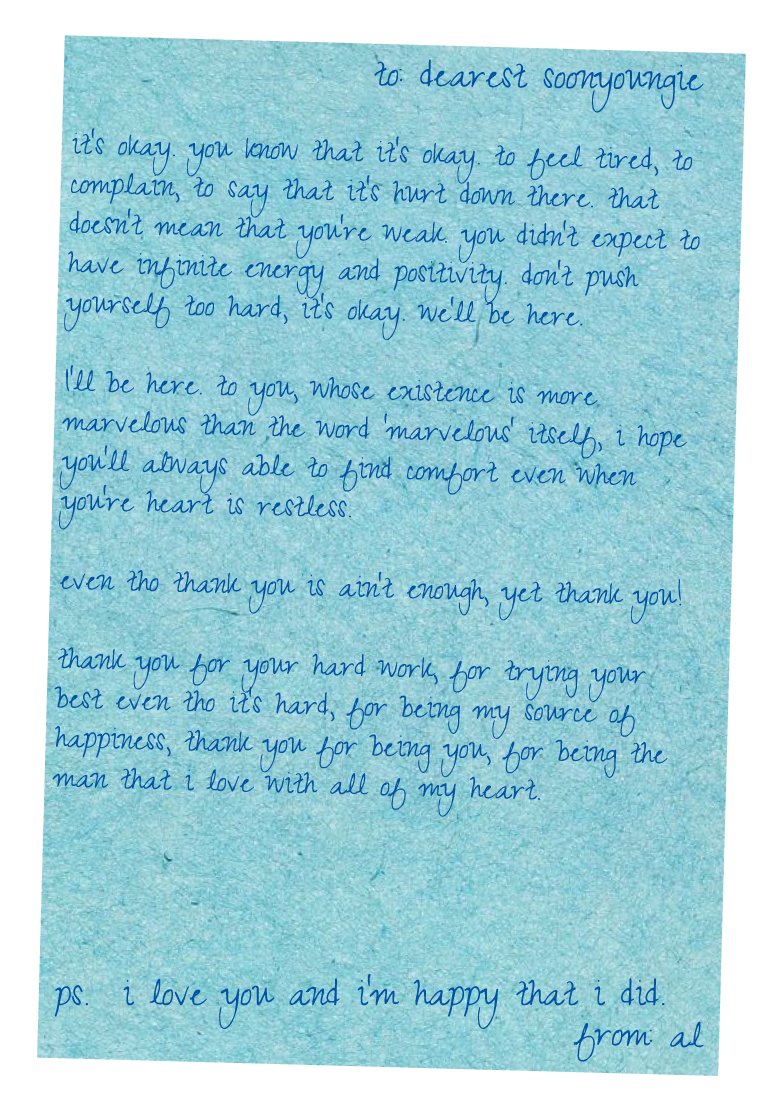 to: dearest soonyoungie
it's okay. you know that it's okay. to feel tired, to
complain, to say that it's hurt down there. that
doesn't mean that you're weak. you didn't expect to
have infinite energy and positivity. don't push
yourself too hard, it's okay. we'll be here.
I'll be here. to you, whose existence is more
marvelous than the word 'marvelous' itself, i hope
you'll always able to find comfort even when
you're heart is restless.
even tho thank you is ain't enough, yet thank you!
thank you for your hard work, for trying your
best even tho it's hard, for being my source of
happiness, thank you for being you, for being the
man that i love with all of my heart.
ps. i love you and i'm happy that i did.
from: al